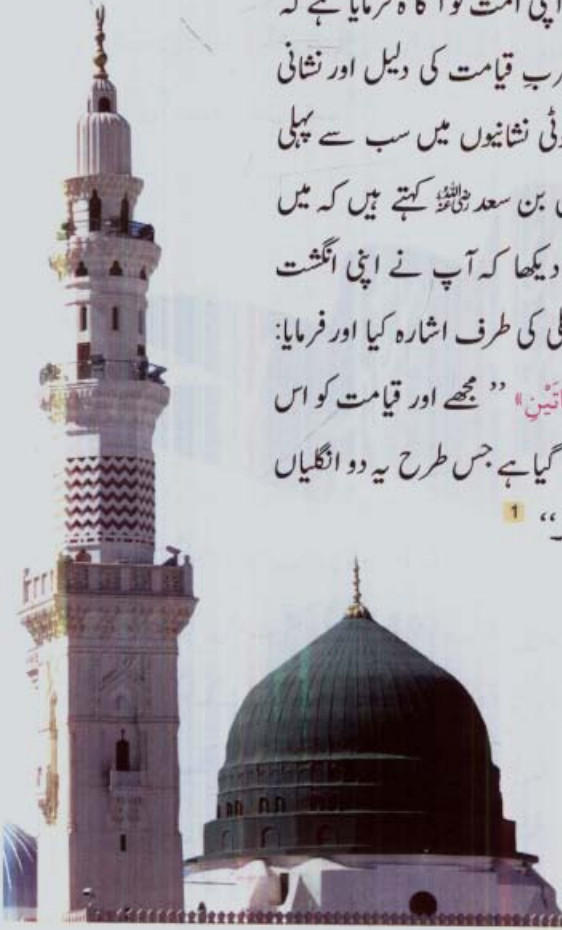 اپنی امت کو آگاہ فرمایا ہے کہ
قیامت کی دلیل اور نشانی
نشانیوں میں سب سے پہلی
بن سعد رضی اللہ عنہ کہتے ہیں کہ میں
دیکھا کہ آپ نے اپنی انگشت
کی طرف اشارہ کیا اور فرمایا:
» ’’ مجھے اور قیامت کو اس
گیا ہے جس طرح یہ دو انگلیاں
‘‘ 1